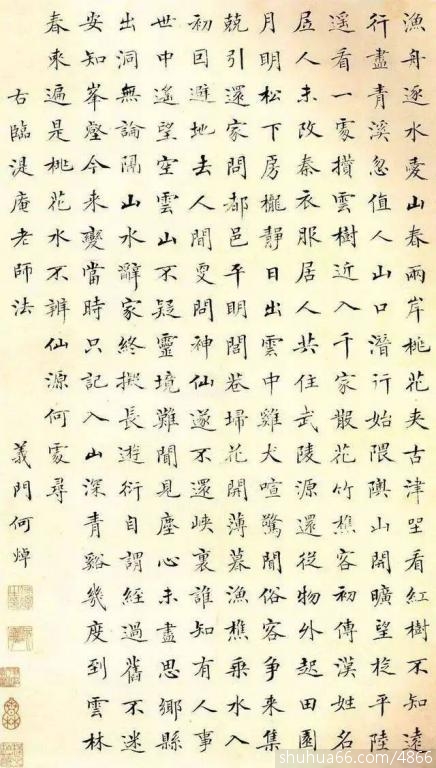 漁舟逐水愛山春兩岸桃花夾古津坐看紅樹不知遠
行盡青溪忽值人山口潛行始隈隩山開曠望旋平陸
遥看一處攢雲樹近入千家散花竹樵客初傳漢姓名
居人未改秦衣服居人共住武陵源還從物外起田園
月明松下房櫳靜日出雲中雞犬喧驚聞俗客爭來集
兢引還家問都邑平明閭巷埽花開薄暮漁樵乘水入
初因避地去人間更問神仙遂不還峽裏誰知有人事
世中遥望空雲山不疑靈境難聞見塵心未盡思鄉縣
出洞無論隔山水辭家終擬長遊衍自謂經過舊不迷
安知峯壑今來變當時只記入山深青谿幾度到雲林
春來遍是桃花水不辨仙源何處尋
右臨湜庵老師法 義門何焯
shuhua66.com/4866